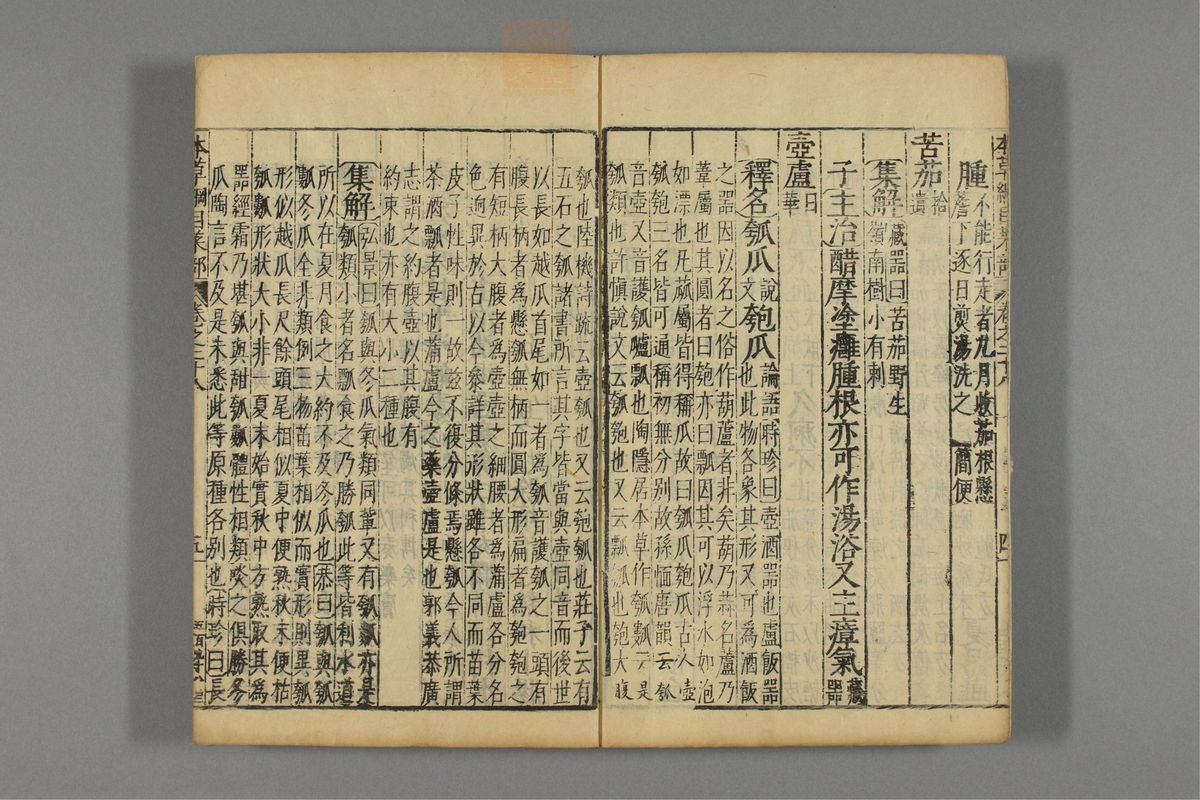 腫不能行走者九月收茄根懸
簷下逐日煎湯洗之 簡便
苦茄拾遺
集解藏器曰苦茄野生
嶺南樹小有刺
子主治醋摩塗癰腫根亦可作湯浴又主瘴氣藏器
壺盧日華
釋名瓠瓜說文匏瓜論語時珍曰壺酒器也盧飯器也此物各象其形又可為酒飯
之器因以名之俗作葫蘆者非矣葫乃蒜名蘆乃
葦屬也其圓者曰匏亦曰瓢因其可以浮水如泡
如漂也凡蓏屬皆得稱瓜故曰瓠瓜匏瓜古人壺
瓠匏三名皆可通稱初無分别故孫愐唐韻云瓠
音壺又音護瓠𤬛瓢也陶隱居本草作瓠𤬏云是
瓠類也許慎說文云瓠匏也又云瓢瓠也匏大腹
瓠也陸機詩疏云壺瓠也又云匏瓠也莊子云有
五石之瓠諸書所言其字皆當與壺同音而後世
以長如越瓜首尾如一者為瓠音護瓠之一頭有
腹長柄者為懸瓠無柄而圓大形扁者為匏匏之
有短柄大腹者為壺壺之細腰者為蒲盧各分名
色迥異於古以今參詳其形狀雖各不同而苗葉
皮子性味則一故兹不復分條焉懸瓠今人所謂
茶酒瓢者是也蒲盧今之藥壺盧是也郭義恭廣
志謂之約腹壺以其腹有
約束也亦有大小二種也
集解弘景曰瓠與冬瓜氣類同輩又有瓠𤬏亦是
瓠類小者名瓢食之乃勝瓠此等皆利水道
所以在夏月食之大約不及冬瓜也恭曰瓠與瓠
𤬏冬瓜全非類例三物苗葉相似而實形則異瓠
形似越瓜長尺餘頭尾相似夏中便熟秋末便枯
瓠𤬏形狀大小非一夏末始實秋中方熟取其為
器經霜乃堪瓠與甜瓠𤬏體性相類啖之俱勝冬
瓜陶言不及是未悉此等原種各别也時珍曰長
本草綱目菜部 卷之二十八 五